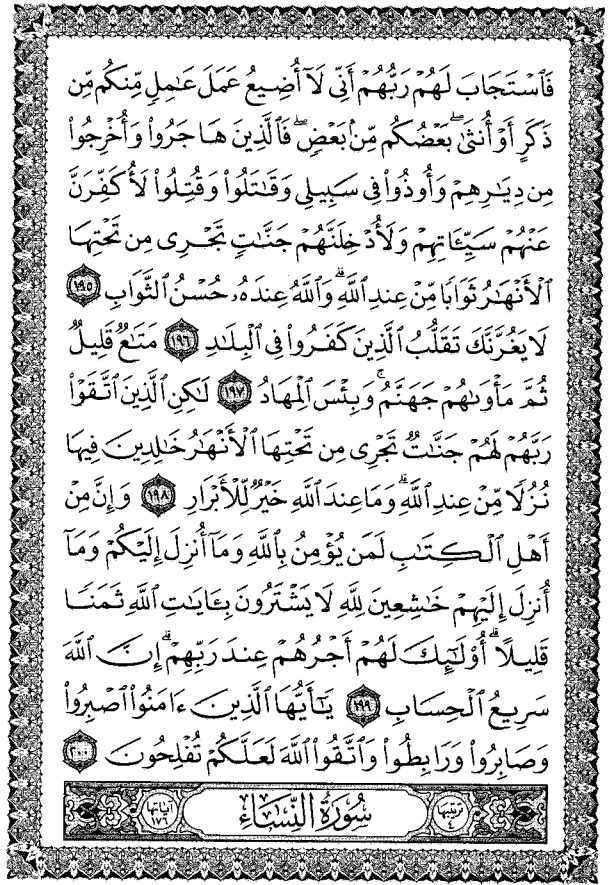 فَٱسۡتَجَابَ لَهُمۡ رَبُّهُمۡ أَنِّي لَآ أُضِيعُ عَمَلَ عَٰمِلٖ مِّنكُم مِّن
ذَكَرٍ أَوۡ أُنثَىٰۖ بَعۡضُكُم مِّنۢ بَعۡضٖۖ فَٱلَّذِينَ هَاجَرُواْ وَأُخۡرِجُواْ
مِن دِيَٰرِهِمۡ وَأُوذُواْ فِي سَبِيلِي وَقَٰتَلُواْ وَقُتِلُواْ لَأُكَفِّرَنَّ
عَنۡهُمۡ سَيِّـَٔاتِهِمۡ وَلَأُدۡخِلَنَّهُمۡ جَنَّٰتٖ تَجۡرِي مِن تَحۡتِهَا
ٱلۡأَنۡهَٰرُ ثَوَابٗا مِّنۡ عِندِ ٱللَّهِۚ وَٱللَّهُ عِندَهُۥ حُسۡنُ ٱلثَّوَابِ ١٩٥
لَا يَغُرَّنَّكَ تَقَلُّبُ ٱلَّذِينَ كَفَرُواْ فِي ٱلۡبِلَٰدِ ١٩٦ مَتَٰعٞ قَلِيلٞ
ثُمَّ مَأۡوَىٰهُمۡ جَهَنَّمُۖ وَبِئۡسَ ٱلۡمِهَادُ ١٩٧ لَٰكِنِ ٱلَّذِينَ ٱتَّقَوۡاْ
رَبَّهُمۡ لَهُمۡ جَنَّٰتٞ تَجۡرِي مِن تَحۡتِهَا ٱلۡأَنۡهَٰرُ خَٰلِدِينَ فِيهَا
نُزُلٗا مِّنۡ عِندِ ٱللَّهِۗ وَمَا عِندَ ٱللَّهِ خَيۡرٞ لِّلۡأَبۡرَارِ ١٩٨ وَإِنَّ مِنۡ
أَهۡلِ ٱلۡكِتَٰبِ لَمَن يُؤۡمِنُ بِٱللَّهِ وَمَآ أُنزِلَ إِلَيۡكُمۡ وَمَآ
أُنزِلَ إِلَيۡهِمۡ خَٰشِعِينَ لِلَّهِ لَا يَشۡتَرُونَ بِـَٔايَٰتِ ٱللَّهِ ثَمَنٗا
قَلِيلًاۚ أُوْلَٰٓئِكَ لَهُمۡ أَجۡرُهُمۡ عِندَ رَبِّهِمۡۗ إِنَّ ٱللَّهَ
سَرِيعُ ٱلۡحِسَابِ ١٩٩ يَٰٓأَيُّهَا ٱلَّذِينَ ءَامَنُواْ ٱصۡبِرُواْ
وَصَابِرُواْ وَرَابِطُواْ وَٱتَّقُواْ ٱللَّهَ لَعَلَّكُمۡ تُفۡلِحُونَ ٢٠٠
ترتيبها ٤ سُورَةُ النِّسَاءِ آياتها ١٧٦